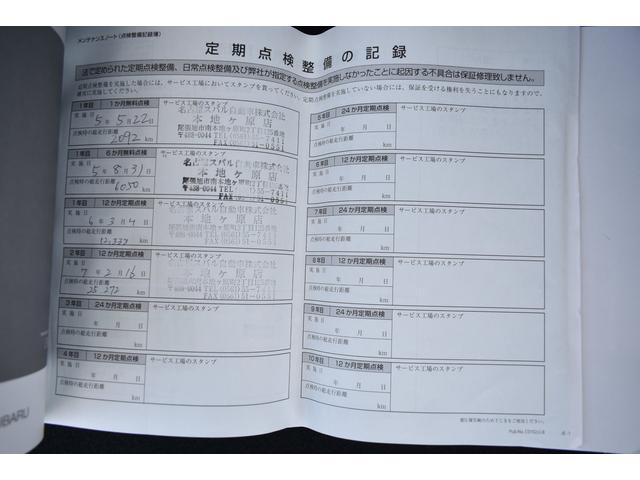 メンテナンスノート(点検整備記録簿)
定期点検整備の記録
法で定められた定期点検整備、日常点検整備及び弊社が指定する点検整備を実施しなかったことに起因する不具合は保証修理致しません。
定期点検を実施した場合には、サービス工場においてスタンプを貰ってください。定期点検整備を実施していない場合には、保証を受ける権利を失うこともありますので、
確実に実施してください。
1年目 1か月無料点検 サービス工場のスタンプ
実施日 5年5月22日
点検時の総走行距離
2092 km
名古屋スバル自動車株式会社
本地ヶ原店
尾張旭市南本地ヶ原町2丁目125番地
〒488-0044 TEL(0561)55-7411
FAX(0561)51-0551
1年目 6か月無料点検 サービス工場のスタンプ
実施日 5年8月31日
点検時の総走行距離
6050 km
名古屋スバル自動車株式会社
本地ヶ原店
〒488-0044
1年目 12か月定期点検 サービス工場のスタンプ
実施日 6年3月4日
点検時の総走行距離
12,337 km
名古屋スバル自動車株式会社
本地ヶ原店
〒488-0044 TEL(0561)55-7411
FAX(0561)51-0551
2年目 12か月定期点検 サービス工場のスタンプ
実施日 7年2月16日
点検時の総走行距離
25,272 km
本地ヶ原店
〒488-0044
3年目 24か月定期点検 サービス工場のスタンプ
実施日 年 月 日
点検時の総走行距離
km
4年目 12か月定期点検 サービス工場のスタンプ
実施日 年 月 日
点検時の総走行距離
km
5年目 24か月定期点検 サービス工場のスタンプ
実施日 年 月 日
点検時の総走行距離
km
6年目 12か月定期点検 サービス工場のスタンプ
実施日 年 月 日
点検時の総走行距離
km
7年目 24か月定期点検 サービス工場のスタンプ
実施日 年 月 日
点検時の総走行距離
km
8年目 12か月定期点検 サービス工場のスタンプ
実施日 年 月 日
点検時の総走行距離
km
9年目 24か月定期点検 サービス工場のスタンプ
実施日 年 月 日
点検時の総走行距離
km
10年目 12か月定期点検 サービス工場のスタンプ
実施日 年 月 日
点検時の総走行距離
km